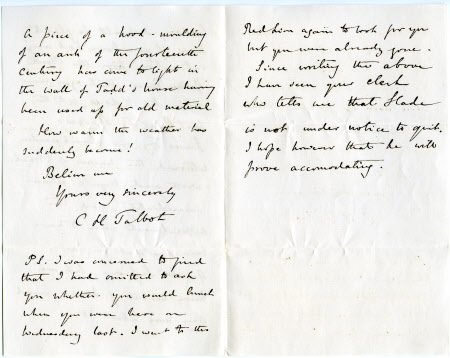 A piece of a hood-moulding
of an arch of the fourteenth
century has come to light in
the wall of Tadd's house having
been used up for old material
How warm the weather has
suddenly become!
Believe me
Yours very sincerely
C H Talbot
PS. I was concerned to find
that I had omitted to ask
you whether you would lunch
when you were here on
Wednesday last. I went to the
Red Lion again to look for you
but you were already gone.
Since writing the above
I have seen your clerk
who tells me that Slade
is not under notice to quit.
I hope however that he will
prove accomodating.